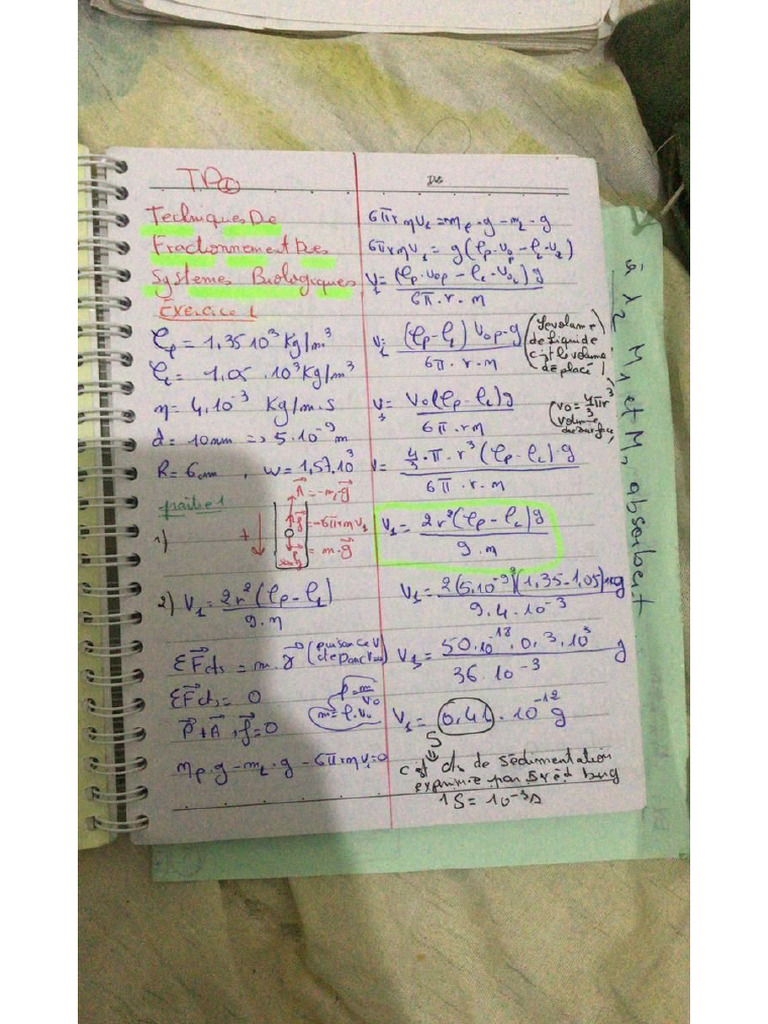 TD①
Techniques De
Fractionnement Des
Systemes Biologiques
Exercice 1
ρp = 1,35 10³ Kg/m³
ρL = 1,05 . 10³ Kg/m³
η = 4.10⁻³ Kg/m.s
d = 10nm => 5.10⁻⁹ m
R = 6cm , w = 1,57.10³
partie 1
1)
A⃗ = -mL g⃗
+
f⃗ = -6πrηV₁
= m.g⃗
2) V₁ = 2r²(ρp - ρL)
9.η
ΣF⃗cts = m.γ⃗
ΣF⃗cts = 0
ρ = m
V₀
m = ρ.V₀
P⃗ + A⃗ + f⃗ = 0
mp.g - mL.g - 6πrηV₁ = 0
6πrηV₁ = mp.g - mL.g
6πrηV₁ = g(ρp.Vop - ρL.VoL)
V₁ = (ρp.Vop - ρL.VoL)g
6π.r.η
V₁ = (ρp - ρL) Vop.g
6π.r.η
(le volume
de liquide
c'est le volume
déplacé)
V₁ = Vo(ρp - ρL)g
6π.rη
(Vo = 4πr³
3
volume
V = 4/3.π.r³(ρp - ρL).g
6π.r.η
V₁ = 2r²(ρp - ρL)g
9.η
V₁ = 2(5.10⁻⁹)²(1,35-1,05)10³g
9.4.10⁻³
V₁ = 50.10⁻¹⁸.0,3.10³ g
36.10⁻³
V₁ = 0,41.10⁻¹² g
S
c'est de sédimentation
exprimée par Svedburg
1S = 10⁻¹³s
à λ₂ M₁ et M₂ absorbent